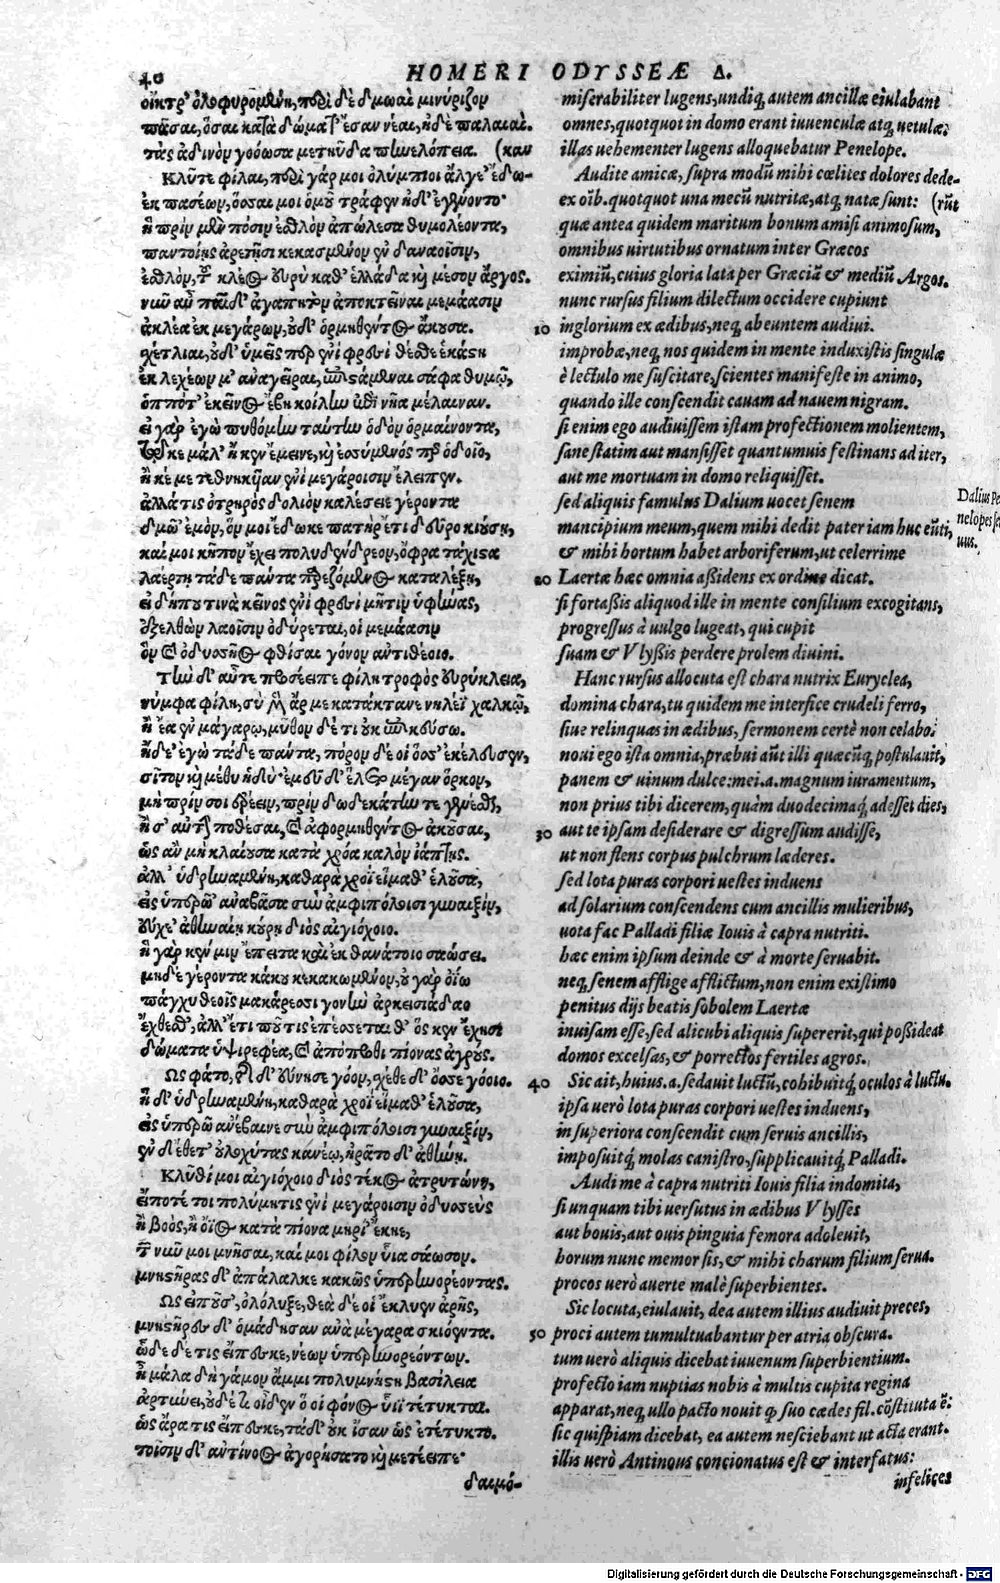 40
HOMERI ODYSSEÆ Δ.
οἴκτρ' ὀλοφυρομένη, περὶ δὲ δμωαὶ μινύριζον
πᾶσαι, ὅσαι κατὰ δώματ' ἔσαν νέαι, ἠδὲ παλαιαί.
τὰς ἁδινὸν γοόωσα μετηύδα πηνελόπεια. (καν
Κλῦτε φίλαι, περὶ γάρ μοι ὀλύμπιοι ἄλγε' ἔδω-
ἐκ πασέων, ὅσσαι μοι ὁμοῦ τράφεν ἠδ' ἐγένοντο·
ἣ πρὶν μὲν πόσιν ἐσθλὸν ἀπώλεσα θυμολέοντα,
παντοίης ἀρετῇσι κεκασμένον ἐν δαναοῖσιν,
ἐσθλὸν, τοῦ κλέος εὐρὺ καθ' ἑλλάδα καὶ μέσον ἄργος.
νῦν αὖ παῖδ' ἀγαπητὸν ἀποκτεῖναι μεμάασιν
ἀκλέα ἐκ μεγάρων, οὐδ' ὁρμηθέντος ἄκουσα.
σχέτλιαι, οὐδ' ὑμεῖς περ ἐνὶ φρεσὶ θέσθε ἑκάστη
ἐκ λεχέων μ' ἀναγεῖραι, ἐπιστάμεναι σάφα θυμῷ,
ὁππότ' ἐκεῖνος ἔβη κοίλην ἐπὶ νῆα μέλαιναν.
εἰ γὰρ ἐγὼ πυθόμην ταύτην ὁδὸν ὁρμαίνοντα,
τῷ κε μάλ' ἤ κεν ἔμεινε, καὶ ἐσσύμενός περ ὁδοῖο,
ἤ κέ με τεθνηκῆαν ἐνὶ μεγάροισιν ἔλειπεν.
ἀλλά τις ὀτρηρὸς δολίον καλέσειε γέροντα
δμῶ' ἐμὸν, ὅν μοι ἔδωκε πατὴρ ἔτι δεῦρο κιούσῃ,
καί μοι κῆπον ἔχει πολυδένδρεον, ὄφρα τάχιστα
λαέρτῃ τάδε πάντα παρεζόμενος καταλέξῃ,
εἰ δή που τινὰ κεῖνος ἐνὶ φρεσὶ μῆτιν ὑφήνας,
ἐξελθὼν λαοῖσιν ὀδύρεται, οἳ μεμάασιν
ὃν καὶ ὀδυσσῆος φθίσαι γόνον ἀντιθέοιο.
Τὴν δ' αὖτε προσέειπε φίλη τροφὸς εὐρύκλεια,
νύμφα φίλη, σὺ μὲν ἄρ με κατάκτανε νηλέϊ χαλκῷ,
ἢ ἔα ἐν μεγάρῳ, μῦθον δέ τι οὐκ ἐπικεύσω.
ᾔδε' ἐγὼ τάδε πάντα, πόρον δέ οἱ ὅσσ' ἐκέλευσεν,
σῖτον καὶ μέθυ ἡδύ· ἐμεῦ δ' ἕλετο μέγαν ὅρκον,
μὴ πρίν σοι ἐρέειν, πρὶν δωδεκάτην τε γενέσθαι,
ἢ σ' αὐτὴν ποθέσαι, καὶ ἀφορμηθέντος ἀκοῦσαι,
ὡς ἂν μὴ κλαίουσα κατὰ χρόα καλὸν ἰάπτῃς.
ἀλλ' ὑδρηναμένη, καθαρὰ χροῒ εἵμαθ' ἑλοῦσα,
εἰς ὑπερῷ' ἀναβᾶσα σὺν ἀμφιπόλοισι γυναιξίν,
εὔχε' ἀθηναίῃ κούρῃ διὸς αἰγιόχοιο.
ἣ γάρ κέν μιν ἔπειτα καὶ ἐκ θανάτοιο σαώσει.
μηδὲ γέροντα κάκου κεκακωμένον, οὐ γὰρ ὀΐω
πάγχυ θεοῖς μακάρεσσι γονὴν ἀρκεισιάδαο
ἔχθεσθ', ἀλλ' ἔτι πού τις ἐπέσσεται θ' ὅς κεν ἔχῃσι
δώματα ὑψιρεφέα, καὶ ἀπόπροθι πίονας ἀγρούς.
Ως φάτο, τῆς δ' εὔνησε γόον, σχέθε δ' ὄσσε γόοιο.
ἣ δ' ὑδρηναμένη, καθαρὰ χροῒ εἵμαθ' ἑλοῦσα,
εἰς ὑπερῷ ἀνέβαινε σὺν ἀμφιπόλοισι γυναιξίν,
ἐν δ' ἔθετ' οὐλοχύτας κανέῳ, ἠρᾶτο δ' ἀθήνῃ.
Κλῦθί μοι αἰγιόχοιο διὸς τέκος ἀτρυτώνη,
εἴ ποτέ τοι πολύμητις ἐνὶ μεγάροισιν ὀδυσσεὺς
ἢ βοὸς, ἢ ὄϊος κατὰ πίονα μηρί' ἔκηε,
τῶν νῦν μοι μνῆσαι, καί μοι φίλον υἷα σάωσον.
μνηστῆρας δ' ἀπάλαλκε κακῶς ὑπερηνορέοντας.
Ως εἰποῦσ', ὀλόλυξε, θεὰ δέ οἱ ἔκλυεν ἀρῆς,
μνηστῆρες δ' ὁμάδησαν ἀνὰ μέγαρα σκιόεντα.
ὧδε δέ τις εἴπεσκε, νέων ὑπερηνορεόντων.
ἦ μάλα δὴ γάμον ἄμμι πολυμνήστη βασίλεια
ἀρτύει, οὐδέ τι οἶδεν ὅ οἱ φόνος υἷϊ τέτυκται.
ὣς ἄρα τις εἴπεσκε, τάδ' οὐκ ἴσαν ὡς ἐτέτυκτο.
τοῖσιν δ' ἀντίνοος ἀγορήσατο καὶ μετέειπε·
δαιμό-
miserabiliter lugens, undiq; autem ancillæ eiulabant
omnes, quotquot in domo erant iuuenculæ atq; uetulæ:
illas uehementer lugens alloquebatur Penelope.
Audite amicæ, supra modũ mihi cælites dolores dede-
ex oĩb. quotquot una mecũ nutritæ, atq; natæ sunt: (rũt
quæ antea quidem maritum bonum amisi animosum,
omnibus uirtutibus ornatum inter Græcos
eximiũ, cuius gloria lata per Græciã & mediũ Argos.
nunc rursus filium dilectum occidere cupiunt
10 inglorium ex ædibus, neq; abeuntem audiui.
improbæ, neq; uos quidem in mente induxistis singulæ
è lectulo me suscitare, scientes manifeste in animo,
quando ille conscendit cauam ad nauem nigram.
si enim ego audiuissem istam profectionem molientem,
sane statim aut mansisset quantumuis festinans ad iter,
aut me mortuam in domo reliquisset.
sed aliquis famulus Dalium uocet senem
mancipium meum, quem mihi dedit pater iam huc eũti,
& mihi hortum habet arboriferum, ut celerrime
20 Laertæ hæc omnia aßidens ex ordine dicat.
si fortaßis aliquod ille in mente consilium excogitans,
progressus à uulgo lugeat, qui cupit
suam & Vlyßis perdere prolem diuini.
Hanc rursus allocuta est chara nutrix Euryclea,
domina chara, tu quidem me interfice crudeli ferro,
siue relinquas in ædibus, sermonem certè non celabo:
noui ego ista omnia, præbui aũt illi quæcũq; postulauit,
panem & uinum dulce: mei. a. magnum iuramentum,
non prius tibi dicerem, quàm duodecimaq; adesset dies,
30 aut te ipsam desiderare & digressum audisse,
ut non flens corpus pulchrum læderes.
sed lota puras corpori uestes induens
ad solarium conscendens cum ancillis mulieribus,
uota fac Palladi filiæ Iouis à capra nutriti.
hæc enim ipsum deinde & à morte seruabit.
neq; senem afflige afflictum, non enim existimo
penitus dijs beatis sobolem Laertæ
inuisam esse, sed alicubi aliquis supererit, qui poßideat
domos excelsas, & porrectos fertiles agros.
40 Sic ait, huius. a. sedauit luctũ, cohibuitq; oculos à luctu.
ipsa uerò lota puras corpori uestes induens,
in superiora conscendit cum seruis ancillis,
imposuitq; molas canistro, supplicauitq; Palladi.
Audi me à capra nutriti Iouis filia indomita,
si unquam tibi uersutus in ædibus Vlysses
aut bouis, aut ouis pinguia femora adoleuit,
horum nunc memor sis, & mihi charum filium serua.
procos uerò auerte malè superbientes.
Sic locuta, eiulauit, dea autem illius audiuit preces,
50 proci autem tumultuabantur per atria obscura.
tum uerò aliquis dicebat iuuenum superbientium.
profecto iam nuptias nobis à multis cupita regina
apparat, neq; ullo pacto nouit q̃ suo cædes fil. cõstituta ẽ:
sic quispiam dicebat, ea autem nesciebant ut acta erant.
illis uerò Antinous concionatus est & interfatus:
infelices
Dalius Pe
nelopes se
uus.
Digitalisierung gefördert durch die Deutsche Forschungsgemeinschaft - DFG